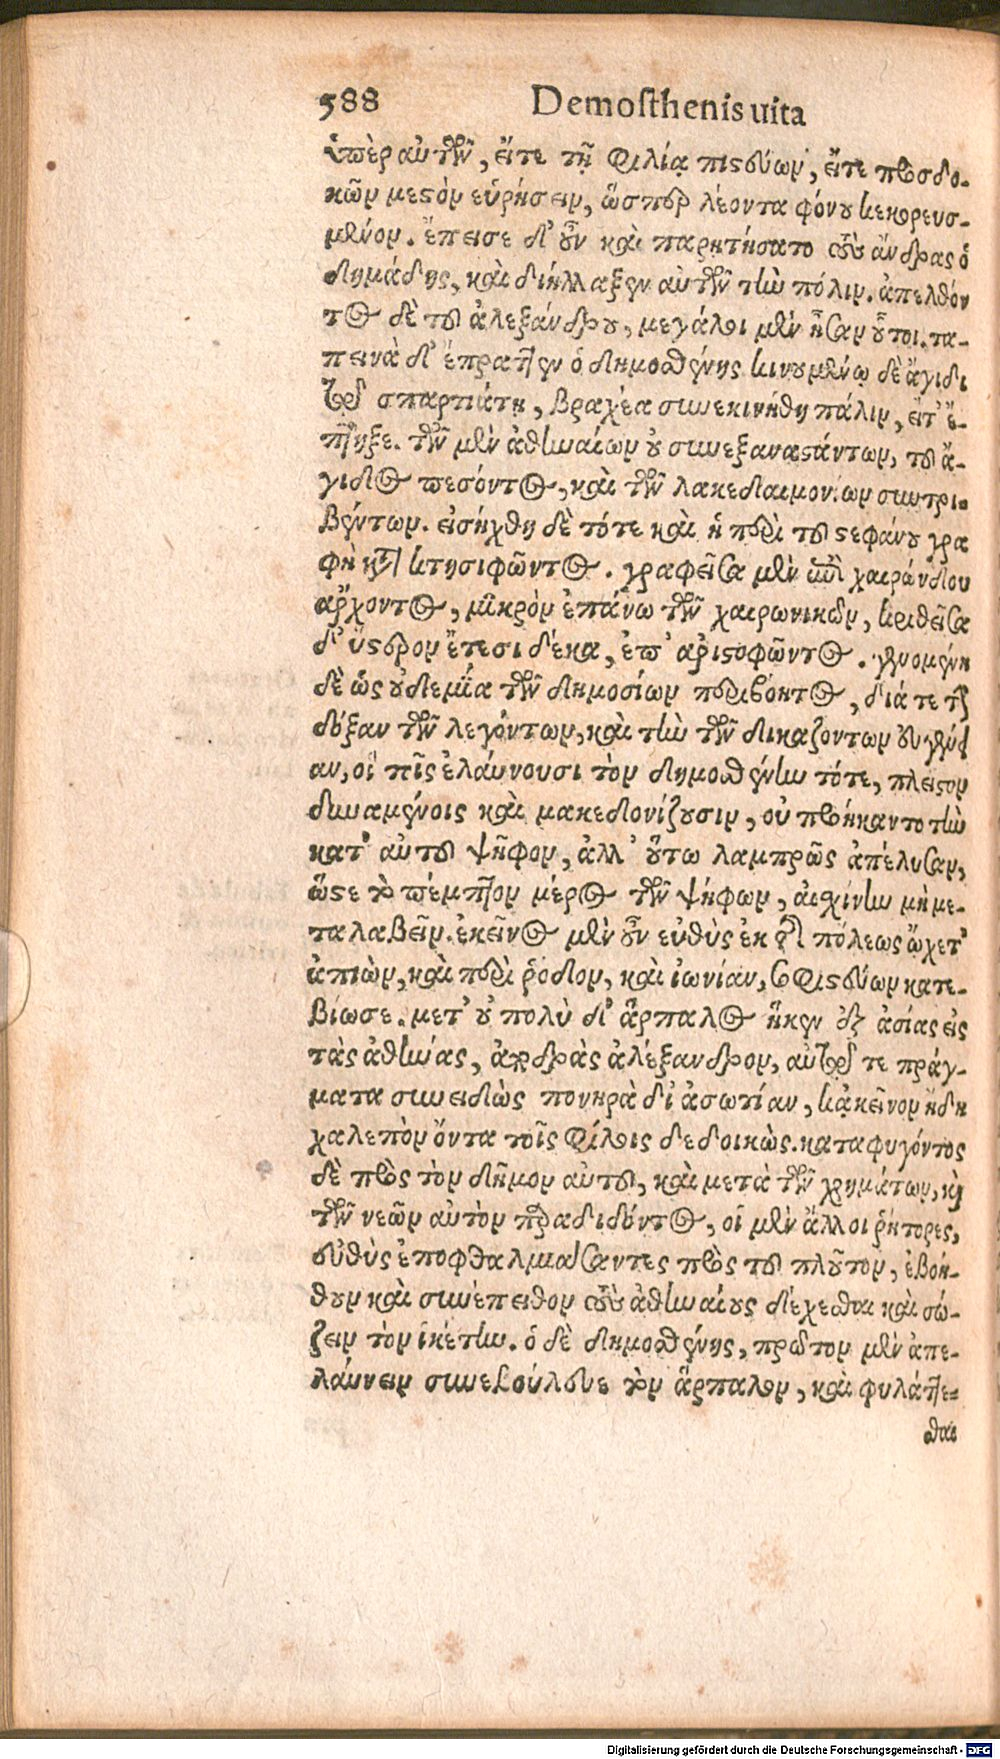 588 Demosthenis uita
ὑπὲρ αὐτῶν, εἴτε τῇ φιλίᾳ πιστεύων, εἴτε προσδο-
κῶν μεστὸν εὑρήσειν, ὥσπερ λέοντα φόνου κεκορευσ-
μένον. ἔπεισε δ' οὖν καὶ παρῃτήσατο τοὺς ἄνδρας ὁ
δημάδης, καὶ διήλλαξεν αὐτῶν τὴν πόλιν. ἀπελθόν
τος δὲ τοῦ ἀλεξάνδρου, μεγάλοι μὲν ἦσαν οὗτοι. τα-
πεινὰ δ' ἔπραττεν ὁ δημοσθένης κινουμένῳ δὲ ἄγιδι
τῷ σπαρτιάτῃ, βραχέα συνεκινήθη πάλιν, εἶτ' ἔ-
πτηξε. τῶν μὲν ἀθηναίων οὐ συνεξαναστάντων, τοῦ ἄ-
γιδος πεσόντος, καὶ τῶν λακεδαιμονίων συντρι-
βέντων. εἰσήχθη δὲ τότε καὶ ἡ περὶ τοῦ στεφάνου γρα
φὴ κατὰ κτησιφῶντος. γραφεῖσα μὲν ἐπὶ χαιρώνδου
ἄρχοντος, μικρὸν ἐπάνω τῶν χαιρωνικῶν, κριθεῖσα
δ' ὕστερον ἔτεσι δέκα, ἐπ' ἀριστοφῶντος. γενομένη
δὲ ὡς οὐδεμία τῶν δημοσίων περιβόητος, διά τε τὴν
δόξαν τῶν λεγόντων, καὶ τὴν τῶν δικαζόντων εὐγένει
αν, οἳ τοῖς ἐλαύνουσι τὸν δημοσθένην τότε, πλεῖστον
δυναμένοις καὶ μακεδονίζουσιν, οὐ προήκαντο τὴν
κατ' αὐτοῦ ψῆφον, ἀλλ' οὕτω λαμπρῶς ἀπέλυσαν,
ὥστε τὸ πέμπτον μέρος τῶν ψήφων, αἰσχίνην μὴ με-
ταλαβεῖν. ἐκεῖνος μὲν οὖν εὐθὺς ἐκ τῆς πόλεως ᾤχετ'
ἀπιὼν, καὶ περὶ ῥόδον, καὶ ἰωνίαν, σοφιστεύων κατε-
βίωσε. μετ' οὐ πολὺ δ' ἅρπαλος ἧκεν ἐξ ἀσίας εἰς
τὰς ἀθήνας, ἀποδρὰς ἀλέξανδρον, αὑτῷ τε πράγ-
ματα συνειδὼς πονηρὰ δι' ἀσωτίαν, κἀκεῖνον ἤδη
χαλεπὸν ὄντα τοῖς φίλοις δεδοικώς. καταφυγόντος
δὲ πρὸς τὸν δῆμον αὐτοῦ, καὶ μετὰ τῶν χρημάτων, καὶ
τῶν νεῶν αὑτὸν παραδιδόντος, οἱ μὲν ἄλλοι ῥήτορες,
εὐθὺς ἐποφθαλμιάσαντες πρὸς τὸν πλοῦτον, ἐβοή-
θουν καὶ συνέπειθον τοὺς ἀθηναίους δέχεσθαι καὶ σώ-
ζειν τὸν ἱκέτην. ὁ δὲ δημοσθένης, πρῶτον μὲν ἀπε-
λαύνειν συνεβούλευε τὸν ἅρπαλον, καὶ φυλάττε-
σθαι
Digitalisierung gefördert durch die Deutsche Forschungsgemeinschaft - DFG